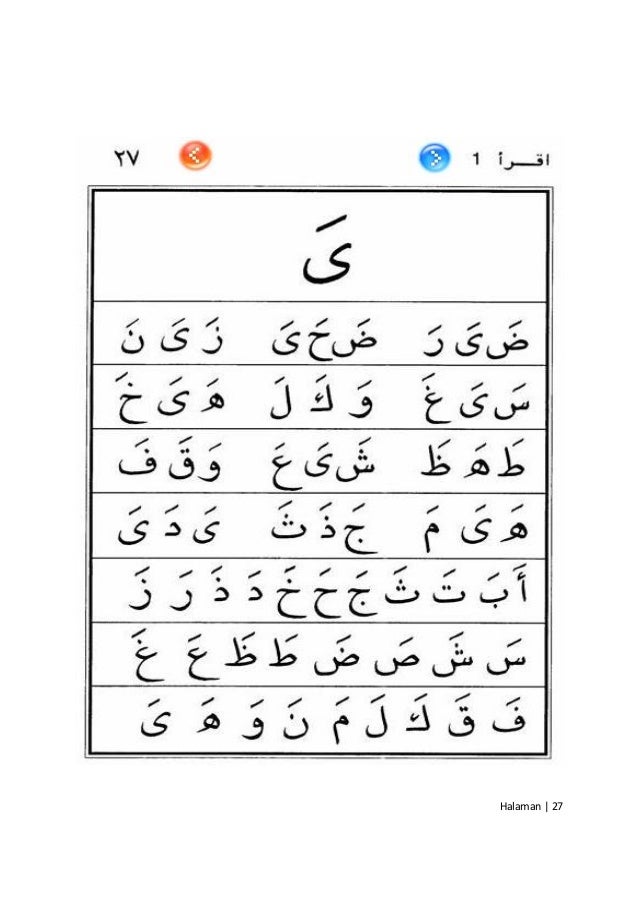 اقــرأ 1 ٢٧
ىَ
ضَ ىَ رَ ضَ حَ ىَ زَ ىَ نَ
سَ ىَ غَ وَ كَ لَ هَ ىَ خَ
طَ هَ ظَ شَ ىَ عَ وَ قَ فَ
هَ ىَ مَ جَ ذَ ثَ ىَ دَ ىَ
أَ بَ تَ ثَ جَ حَ خَ دَ ذَ رَ زَ
سَ شَ صَ ضَ طَ ظَ عَ غَ
فَ قَ كَ لَ مَ نَ وَ هَ ىَ
Halaman | 27